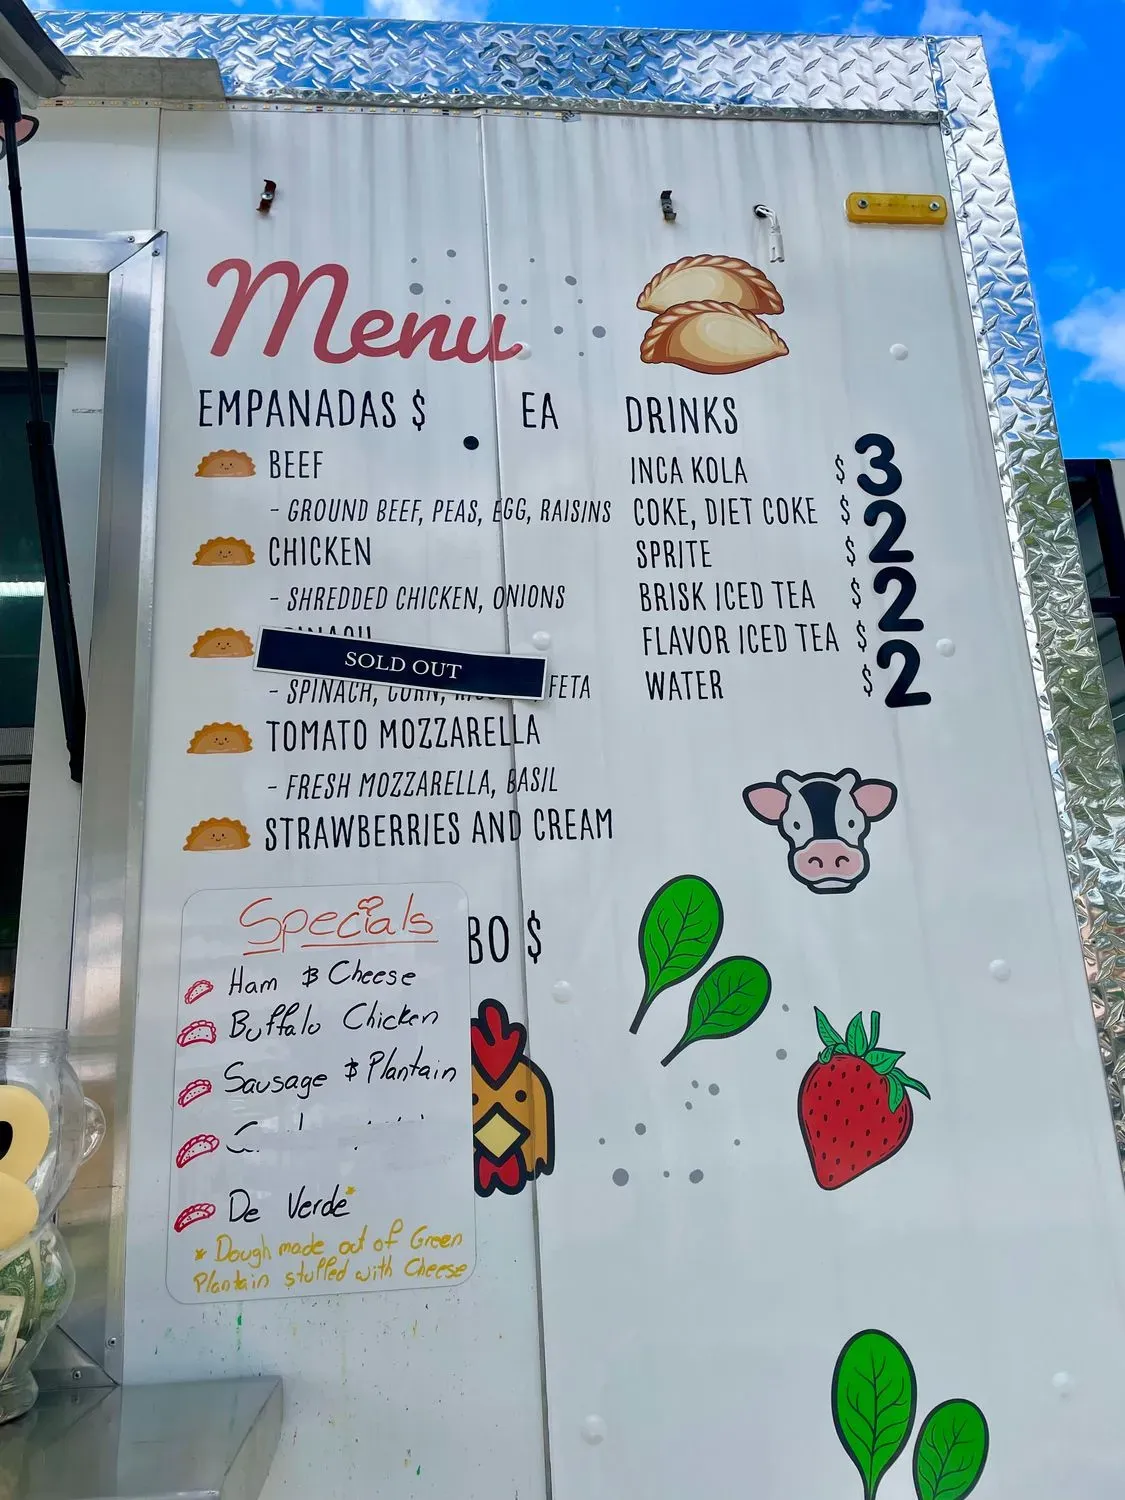 Menu
EMPANADAS $ EA
BEEF
- GROUND BEEF, PEAS, EGG, RAISINS
CHICKEN
- SHREDDED CHICKEN, ONIONS
SPINACH
SOLD OUT
- SPINACH, CORN, FETA
TOMATO MOZZARELLA
- FRESH MOZZARELLA, BASIL
STRAWBERRIES AND CREAM
BO $
DRINKS
INCA KOLA $ 3
COKE, DIET COKE $ 2
SPRITE $
BRISK ICED TEA $ 2
FLAVOR ICED TEA $
WATER $ 2
Specials
Ham & Cheese
Buffalo Chicken
Sausage & Plantain
De Verde*
* Dough made out of Green
Plantain stuffed with Cheese